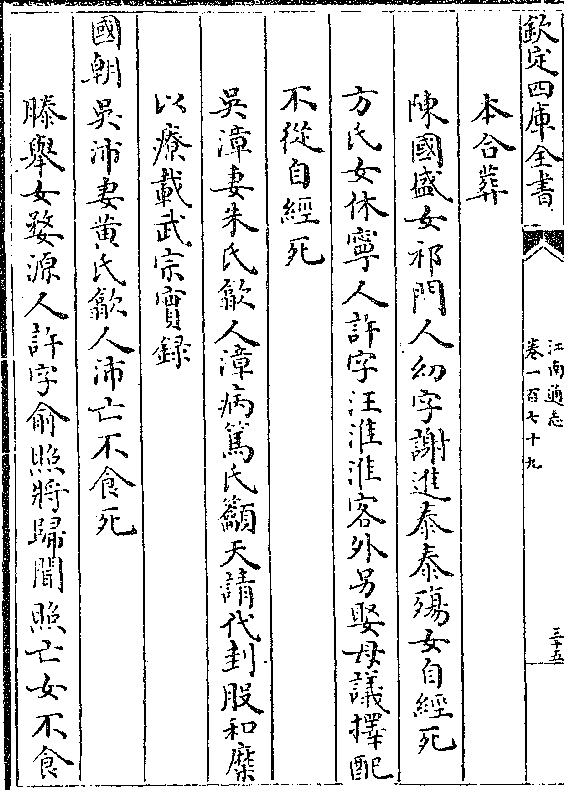 欽定四庫全書
江南通志
卷一百七十九
三十五
本合葬
陳國盛女祁門人幼字謝進泰泰殤女自經死
方氏女休寧人許字汪淮淮客外另娶母議擇配
不從自經死
吳漳妻朱氏歙人漳病篤氏籲天請代刲股和糜
以療載武宗實録
國朝吳沛妻黄氏歙人沛亡不食死
滕舉女婺源人許字俞照將歸聞照亡女不食